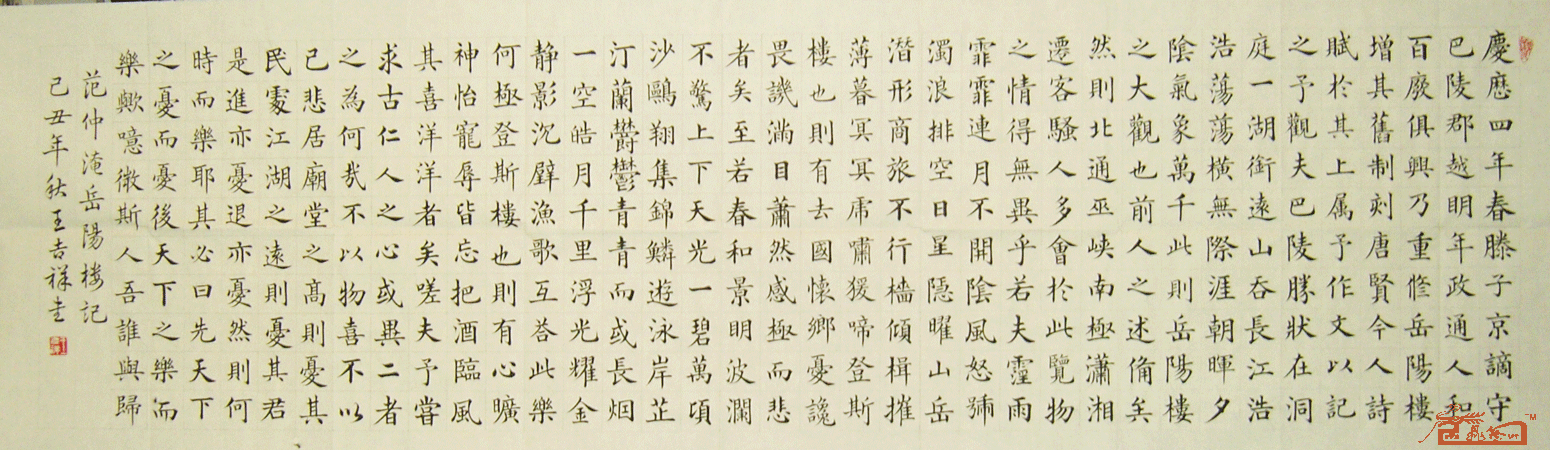 慶歷四年春滕子京謫守
巴陵郡越明年政通人和
百廢俱興乃重脩岳陽樓
增其舊制刻唐賢今人詩
賦於其上属予作文以記
之予觀夫巴陵勝狀在洞
庭一湖銜遠山吞長江浩
浩蕩蕩橫無際涯朝暉夕
陰氣象萬千此則岳陽樓
之大觀也前人之述備矣
然則北通巫峽南極瀟湘
遷客騷人多會於此覽物
之情得無異乎若夫霪雨
霏霏連月不開陰風怒號
濁浪排空日星隱曜山岳
潛形商旅不行檣傾楫摧
薄暮冥冥虎嘯猨啼登斯
樓也則有去國懷鄉憂讒
畏譏滿目蕭然感極而悲
者矣至若春和景明波瀾
不驚上下天光一碧萬頃
沙鷗翔集錦鱗遊泳岸芷
汀蘭鬱鬱青青而或長烟
一空皓月千里浮光耀金
静影沉璧漁歌互荅此樂
何極登斯樓也則有心曠
神怡寵辱皆忘把酒臨風
其喜洋洋者矣嗟夫予嘗
求古仁人之心或異二者
之為何哉不以物喜不以
己悲居廟堂之高則憂其
民處江湖之遠則憂其君
是進亦憂退亦憂然則何
時而樂耶其必曰先天下
之憂而憂後天下之樂而
樂歟噫微斯人吾誰與歸
范仲淹岳陽楼記
己丑年秋王吉祥書